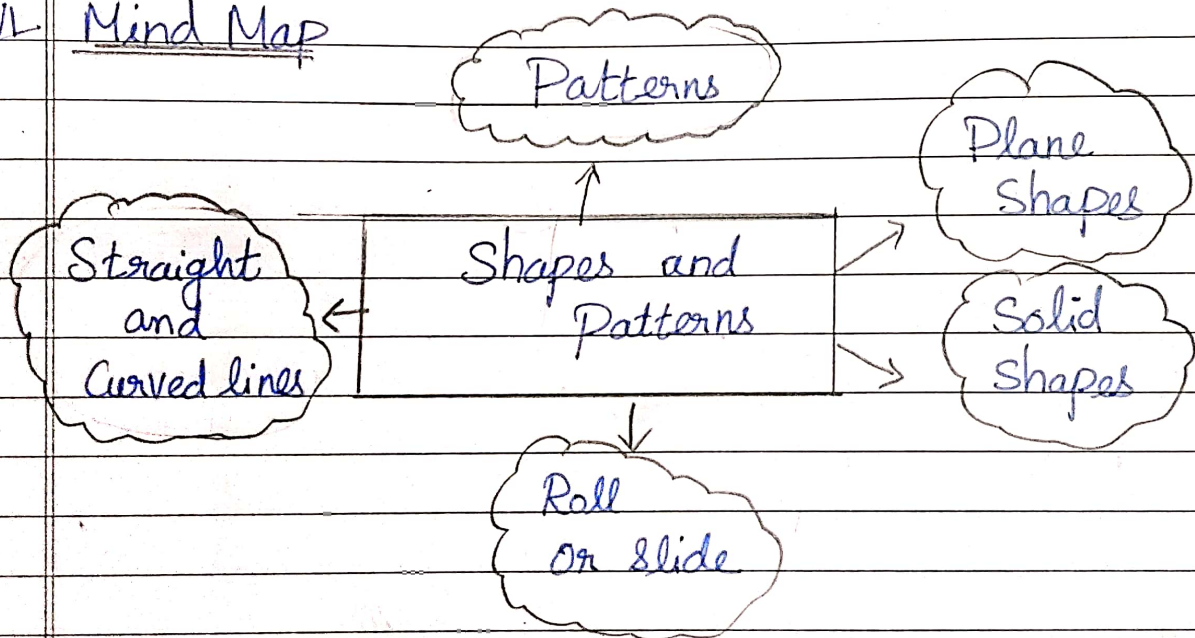 Mind Map
Patterns
Plane
Shapes
Straight
and
Curved lines
Shapes and
Patterns
Solid
Shapes
Roll
or slide